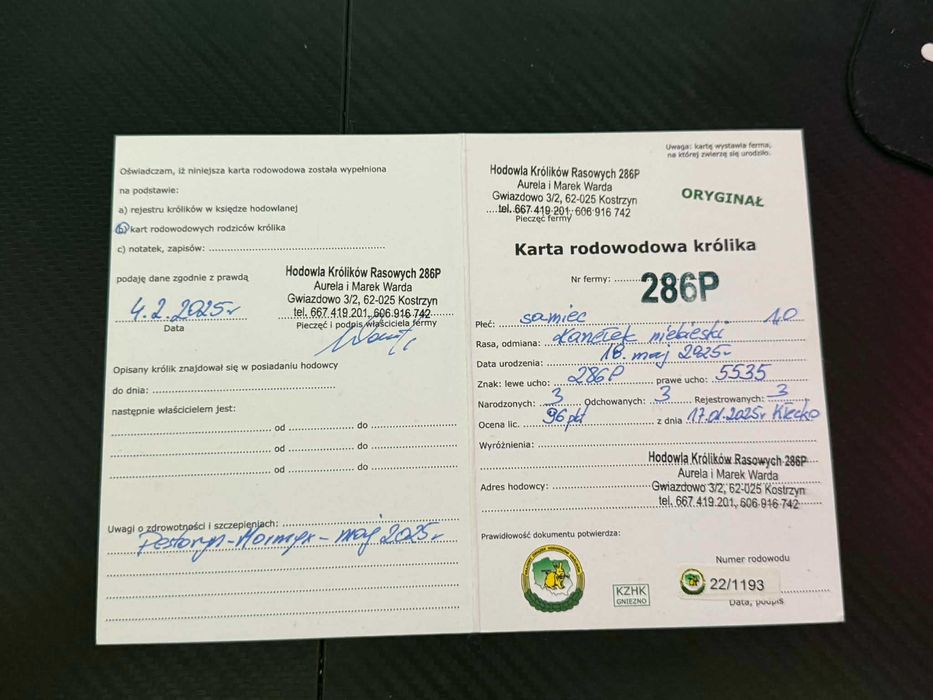 Oświadczam, iż niniejsza karta rodowodowa została wypełniona
na podstawie:
a) rejestru królików w księdze hodowlanej
b) kart rodowodowych rodziców królika
c) notatek, zapisów:
podaję dane zgodnie z prawdą
4.2.2025r
Data
Hodowla Królików Rasowych 286P
Aurela i Marek Warda
Gwiazdowo 3/2, 62-025 Kostrzyn
tel. 667 419 201, 606 916 742
Pieczęć i podpis właściciela fermy
Opisany królik znajdował się w posiadaniu hodowcy
do dnia:
następnie właścicielem jest:
od do
od do
od do
Uwagi o zdrowotności i szczepieniach:
maj 2025r
Uwaga: kartę wystawia ferma,
na której zwierzę się urodziło.
Hodowla Królików Rasowych 286P
Aurela i Marek Warda
Gwiazdowo 3/2, 62-025 Kostrzyn
tel. 667 419 201, 606 916 742
Pieczęć fermy
ORYGINAŁ
Karta rodowodowa królika
Nr fermy: 286P
Płeć: samiec 1,0
Rasa, odmiana: niebieski
Data urodzenia: 18. maj 2025r
Znak: lewe ucho: 286P prawe ucho: 5535
Narodzonych: 3 Odchowanych: 3 Rejestrowanych: 3
Ocena lic. 96 pkt z dnia 17.01.2025r Kłecko
Wyróżnienia:
Hodowla Królików Rasowych 286P
Aurela i Marek Warda
Adres hodowcy: Gwiazdowo 3/2, 62-025 Kostrzyn
tel. 667 419 201, 606 916 742
Prawidłowość dokumentu potwierdza:
Numer rodowodu
KZHK
GNIEZNO
22/1193
Data, podpis